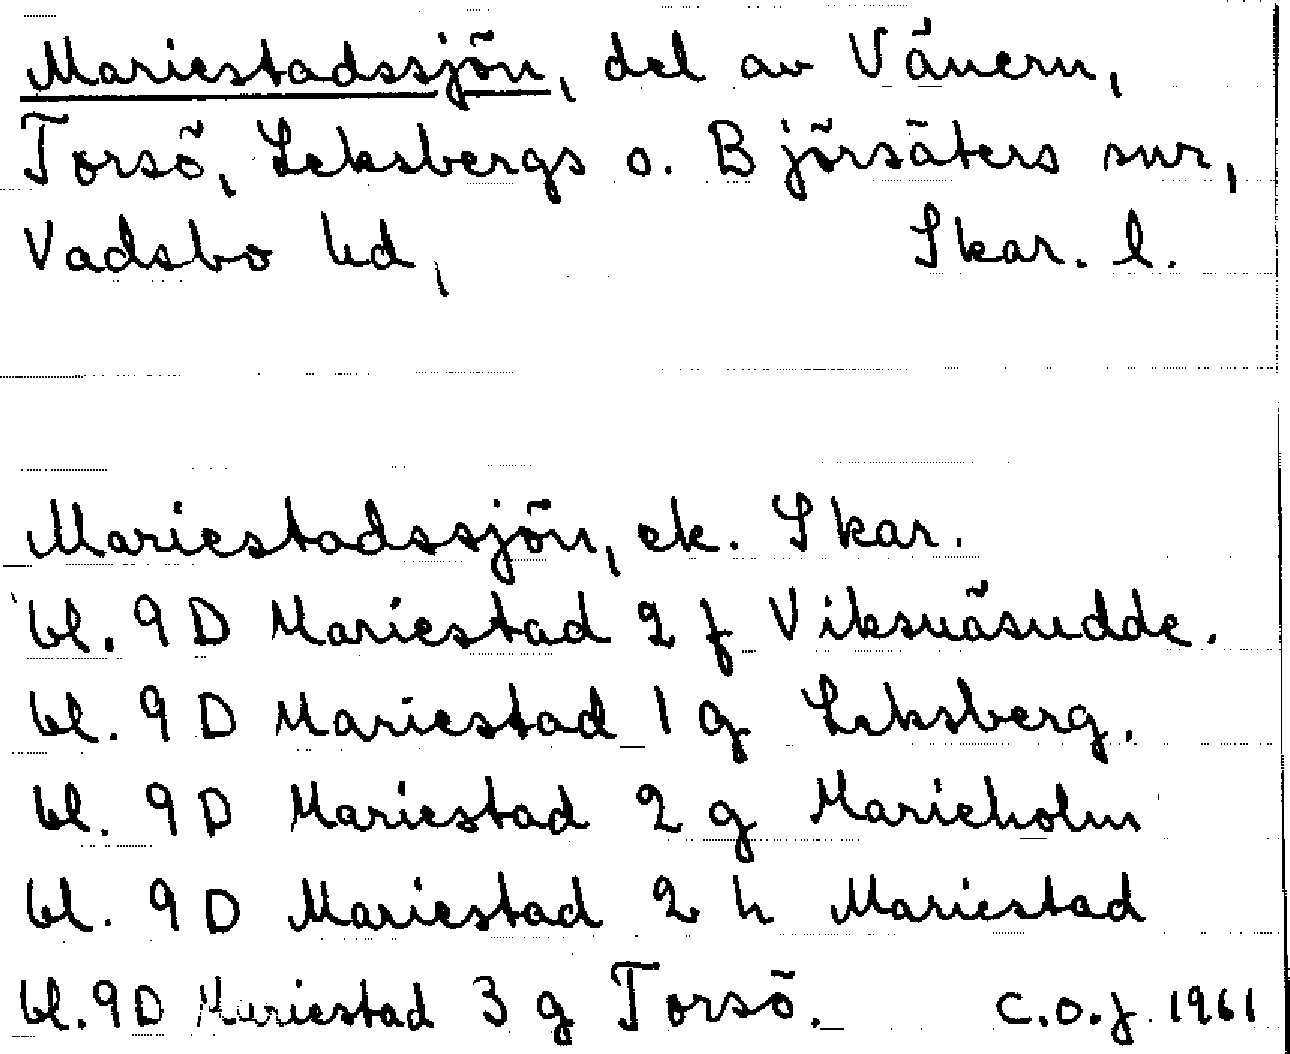 Mariestadssjön, del av Vänern,
Torsö, Leksbergs o. Björsäters snr,
Vadsbo hd, Skar. l.
Mariestadssjön, ek. Skar.
bl. 9 D Mariestad 2 f Viksnäsudde.
bl. 9 D Mariestad 1 g Leksberg.
bl. 9 D Mariestad 2 g Marieholm
bl. 9 D Mariestad 2 h Mariestad
bl. 9 D Mariestad 3 g Torsö. C.O.J. 1961